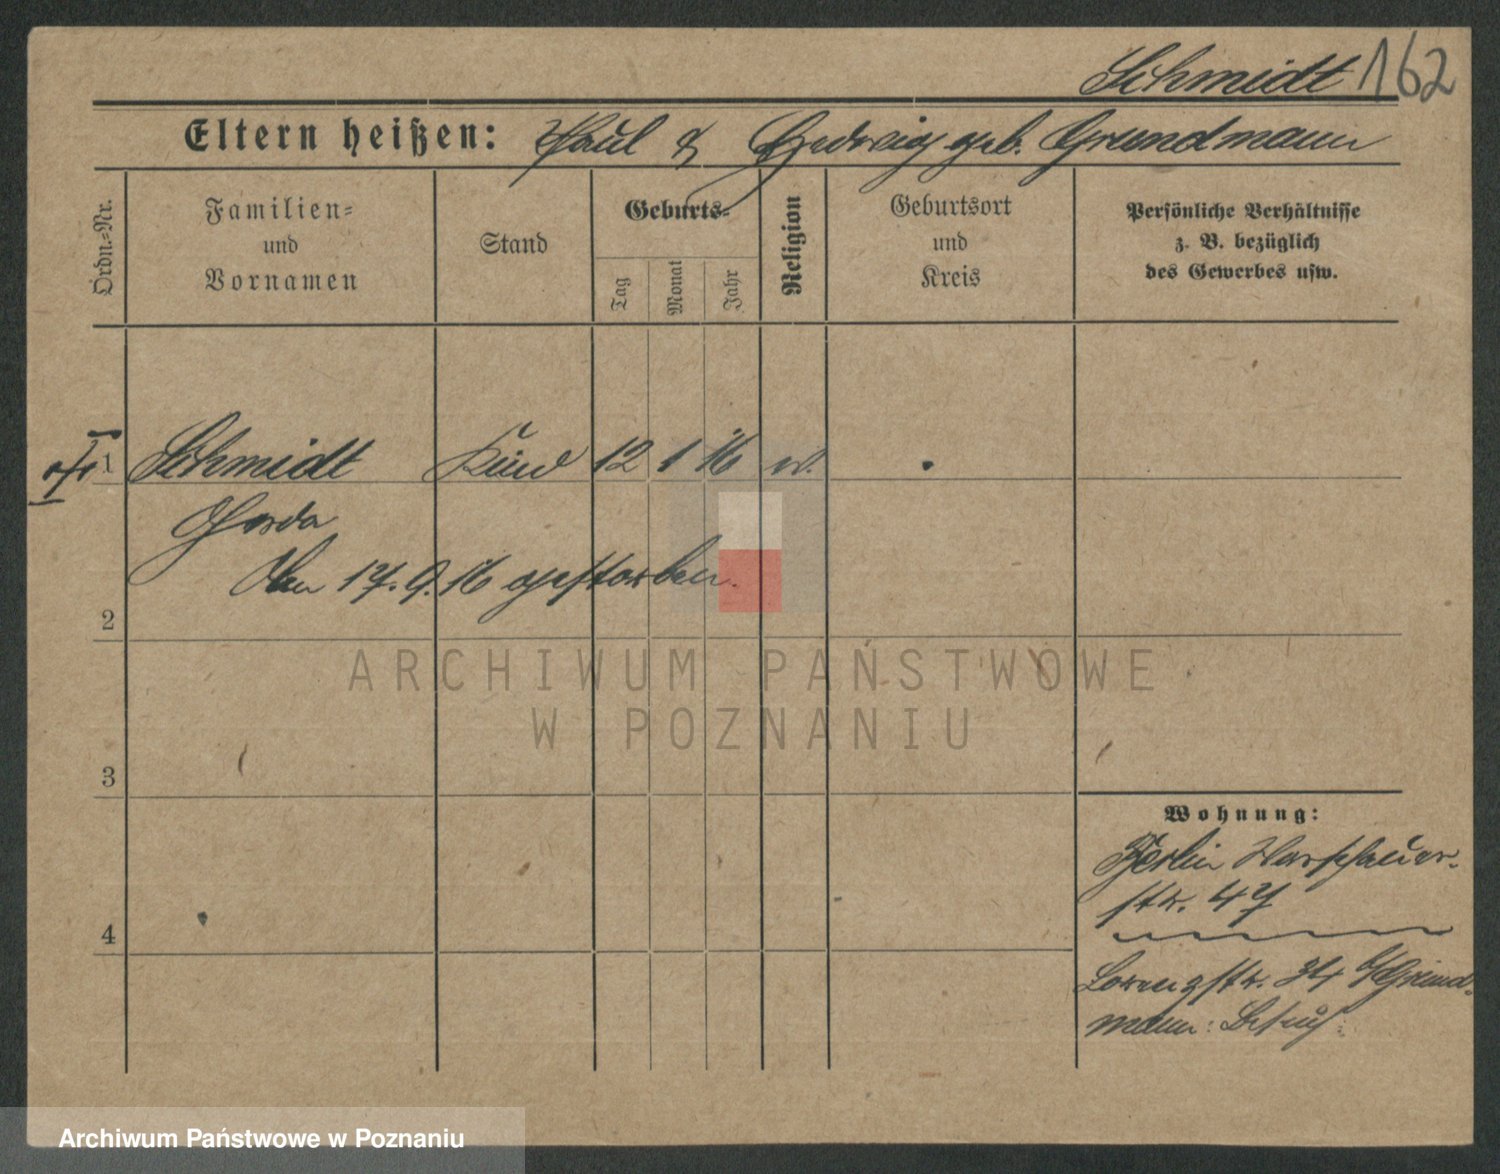 Schmidt 162
Eltern heißen: Paul & Hedwig geb. Grundmann
Ordn.-Nr.
Familien-
und
Vornamen
Stand
Geburts-
Tag
Monat
Jahr
Religion
Geburtsort
und
Kreis
Persönliche Verhältnisse
z. B. bezüglich
des Gewerbes usw.
1 Schmidt Kind 12 1 16
Gerda
Am 17. 9. 16 gestorben.
2
3
4
Wohnung:
Berlin Warschauer-
str. 47
Lorenzstr. 34 b/Grund-
mann: Besuch
ARCHIWUM PAŃSTWOWE
W POZNANIU
Archiwum Państwowe w Poznaniu